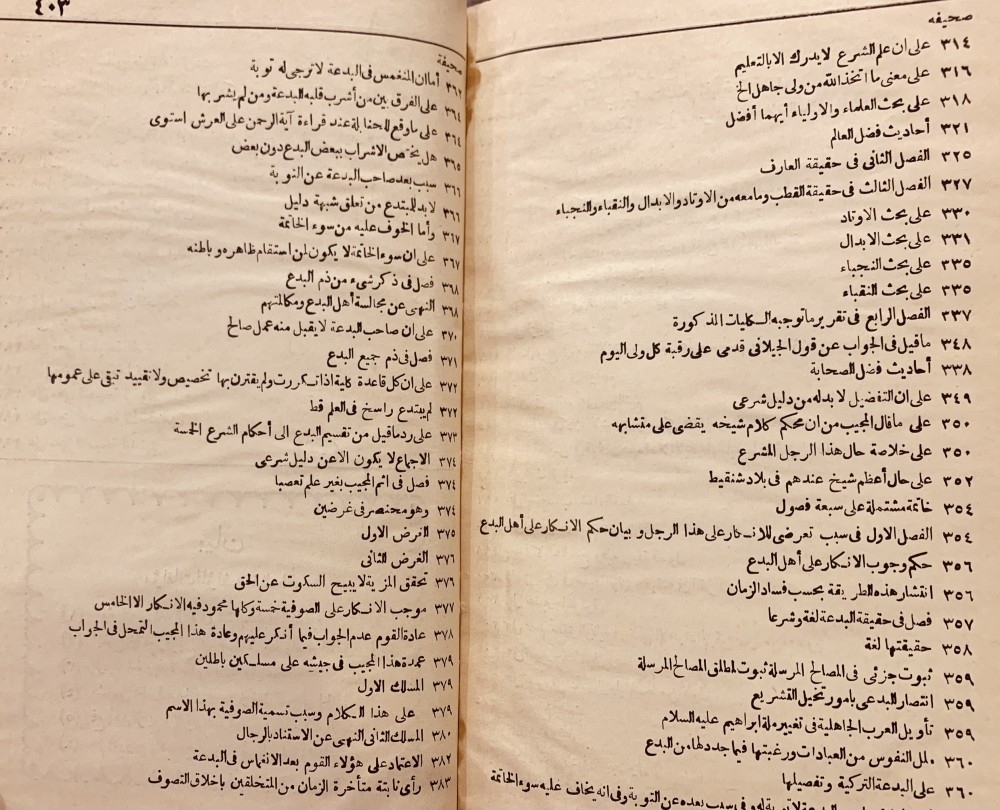 صحيفه
٣١٤ على ان علم الشرع لا يدرك الا بالتعليم
٣١٦ على معنى ما اتخذ الله من ولى جاهل الخ
٣١٨ على بحث العلماء والاولياء أيهما أفضل
٣٢١ أحاديث فضل العالم
٣٢٥ الفصل الثانى فى حقيقة العارف
٣٢٧ الفصل الثالث فى حقيقة القطب وما معه من الاوتاد والابدال والنقباء والنجباء
٣٣٠ على بحث الاوتاد
٣٣١ على بحث الابدال
٣٣٥ على بحث النجباء
٣٣٥ على بحث النقباء
٣٣٧ الفصل الرابع فى تقرير ما توجبه الكليات المذكورة
٣٤٨ ماقيل فى الجواب عن قول الجيلانى قدمى على رقبة كل ولى اليوم
٣٣٨ أحاديث فضل الصحابة
٣٤٩ على ان التفضيل لا بدله من دليل شرعى
٣٥٠ على ماقال المجيب من ان محكم كلام شيخه يقضى على متشابهه
٣٥٠ على خلاصة حال هذا الرجل المشرع
٣٥٢ على حال أعظم شيخ عندهم فى بلاد شنقيط
٣٥٤ خاتمة مشتملة على سبعة فصول
٣٥٤ الفصل الاول فى سبب تعرضى للانكار على هذا الرجل وبيان حكم الانكار على أهل البدع
٣٥٦ حكم وجوب الانكار على أهل البدع
٣٥٦ انتشار هذه الطريقة بحسب فساد الزمان
٣٥٧ فصل فى حقيقة البدعة لغة وشرعا
٣٥٨ حقيقتها لغة
٣٥٩ ثبوت جزئى فى المصالح المرسلة ثبوت لمطلق المصالح المرسلة
٣٥٩ انتصار البدعى بامور تخيل التشريع
٣٥٩ تأويل العرب الجاهلية فى تغيير ملة ابراهيم عليه السلام
٣٦٠ ملل النفوس من العبادات ورغبتها فيما جدد لها من البدع
٣٦٠ على البدعة التركية وتفصيلها
لا توبة له وفى سبب بعده عن التوبة وفى انه يخاف عليه سوء الخاتمة
٤٠٣
صحيفة
٣٦٢ أما ان المنغمس فى البدعة لا ترجى له توبة
٣٦٤ على الفرق بين من أشرب قلبه البدعة ومن لم يشربها
٣٦٤ على ما وقع للحنابلة عند قراءة آية الرحمن على العرش استوى
٣٦٥ هل يختص الاشراب ببعض البدع دون بعض
٣٦٦ سبب بعد صاحب البدعة عن التوبة
٣٦٦ لا بد للمبتدع من تعلق شبهة دليل
٣٦٧ وأما الخوف عليه من سوء الخاتمة
٣٦٧ على ان سوء الخاتمة لا يكون لمن استقام ظاهره وباطنه
٣٦٨ فصل فى ذكر شىء من ذم البدع
٣٦٨ النهى عن مجالسة أهل البدع ومكالمتهم
٣٧٠ على ان صاحب البدعة لا يقبل منه عمل صالح
٣٧١ فصل فى ذم جميع البدع
٣٧٢ على ان كل قاعدة كلية اذا تكررت ولم يقترن بها تخصيص ولا تقييد تبقى على عمومها
٣٧٢ لم يبتدع راسخ فى العلم قط
٣٧٣ على رد ماقيل من تقسيم البدع الى أحكام الشرع الخمسة
٣٧٤ الاجماع لا يكون الا عن دليل شرعى
٣٧٤ فصل فى اثم المجيب بغير علم تعصبا
٣٧٤ وهو منحصر فى غرضين
٣٧٥ الغرض الاول
٣٧٦ الغرض الثانى
٣٧٦ تحقق المزية لا يبيح السكوت عن الحق
٣٧٧ موجب الانكار على الصوفية خمسة وكلها محمود فيه الانكار الا الخامس
٣٧٨ عادة القوم عدم الجواب فيما أنكر عليهم وعادة هذا المجيب التمحل فى الجواب
٣٧٩ عمدة هذا المجيب فى جيشه على مسلكين باطلين
٣٧٩ المسلك الاول
٣٧٩ على هذا الكلام وسبب تسمية الصوفية بهذا الاسم
٣٨٠ المسلك الثانى النهى عن الاستناد بالرجال
٣٨٢ الاعتماد على هؤلاء القوم بعد الانغماس فى البدعة
٣٨٣ رأى نابتة متأخرة الزمان من المتخلقين باخلاق التصوف